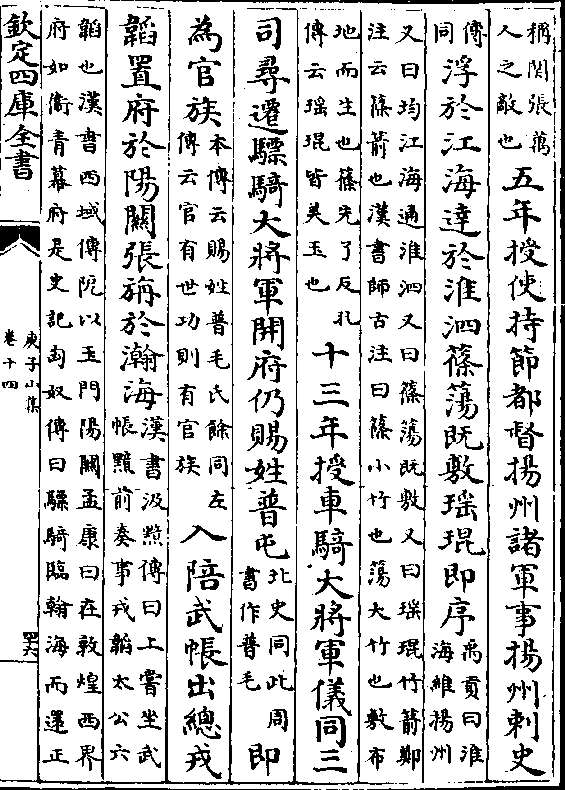 稱関張萬
人之敵也
五年授使持節都督揚州諸軍事揚州刺史
傳
同
浮於江海達於淮泗篠簜既敷瑶琨即序
禹貢曰淮
海維揚州
又曰均江海通淮泗又曰篠簜既敷又曰瑶琨竹箭鄭
注云篠箭也漢書師古注曰篠小竹也簜大竹也敷布
地而生也篠先了反孔
傳云瑶琨皆美玉也
十三年授車騎大將軍儀同三
司尋遷驃騎大將軍開府仍賜姓普屯
北史同此周
書作普毛
即
為官族
本傳云賜姓普毛氏餘同左
傳云官有世功則有官族
入陪武帳出總戎
韜置府於陽闗張旃於瀚海
漢書汲黯傳曰上嘗坐武
帳黯前奏事戎韜太公六
韜也漢書西域傳阨以玉門陽闗孟康曰在敦煌西界
府如衛青幕府是史記匈奴傳曰驃騎臨翰海而還正
欽定四庫全書
庾子山集
卷十四